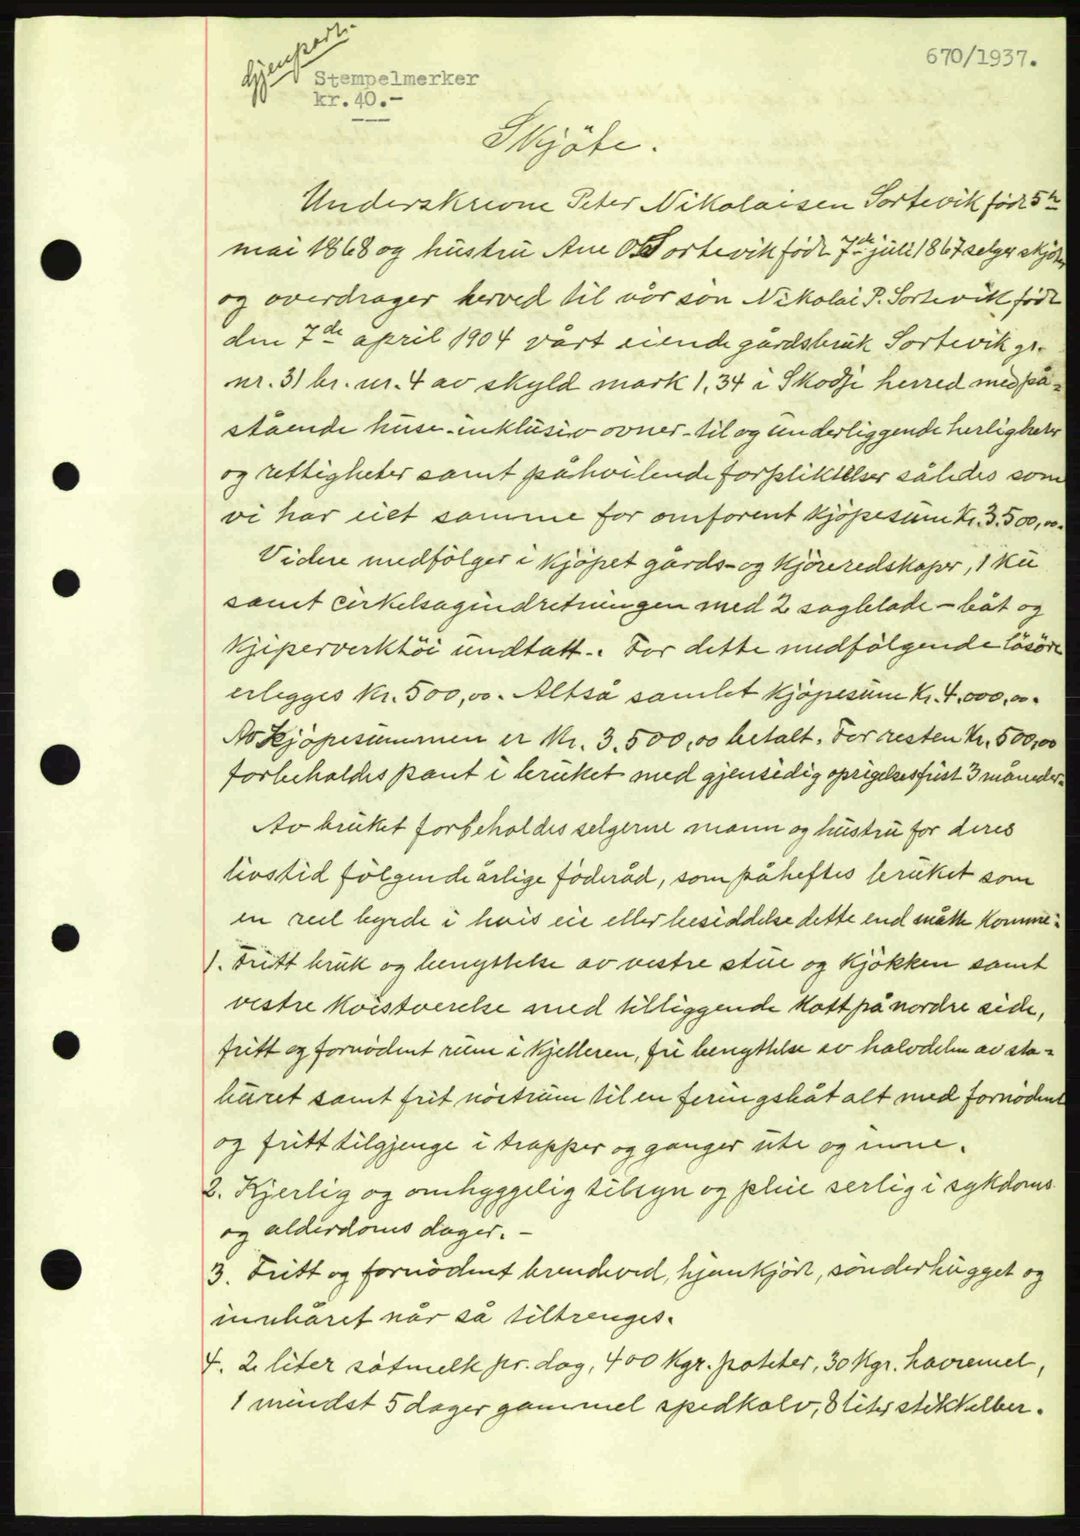 Gjenpart.
670/1937.
Stempelmerker
kr.40.-
Skjöte.
Underskrevne Peter Nikolaisen Sortevik född 5te
mai 1868 og hustru Ane O. Sortevik född 7de juli 1867 selger skjöter
og overdrager herved til vår sön Nikolai P. Sortevik född
den 7de april 1904 vårt eiende gårdsbruk Sortevik gr.
nr. 31 br. nr. 4 av skyld mark 1,34 i Skodje herred med på-
stående huse inklusiv ovner - til og underliggende herligheter
og rettigheter samt påhvilende forpliktelser således som
vi har eiet samme for omforent kjöpesum Kr. 3.500,00.
Videre medfölger i kjöpet gårds- og kjöreredskaper, 1 ku
samt cirkelsagindretningen med 2 sagblade - båt og
kjiperverktöi undtatt -. For dette medfölgende lösöre
erlegges Kr. 500,00. Altså samlet kjöpesum Kr. 4.000,00.
Av kjöpesummen er Kr. 3.500,00 betalt. For resten Kr. 500,00
forbeholdes pant i bruket med gjensidig opsigelsesfrist 3 måneder.
Av bruket forbeholdes selgerne mann og hustru for deres
livstid fölgende årlige föderåd, som påheftes bruket som
en reel byrde i hvis eie eller besiddelse dette end måtte komme:
1. Fritt bruk og benyttelse av vestre stue og kjökken samt
vestre kvistverelse med tilliggende kott på nordre side,
fritt og fornödent rum i kjelleren, fri benyttelse av halvdelen av sta-
buret samt frit nöstrum til en feringsbåt alt med fornödent
og fritt tilgjenge i trapper og ganger ute og inne.
2. Kjerlig og omhyggelig tilsyn og pleie serlig i sykdoms
og alderdoms dager. -
3. Fritt og fornödent brendeved, hjemkjört, sönderhugget og
innbåret når så tiltrenges.
4. 2 liter sötmelk pr. dag, 400 Kgr. poteter, 30 Kgr. havremel,
1 mindst 5 dager gammel spedkalv, 8 liter stikkelber.